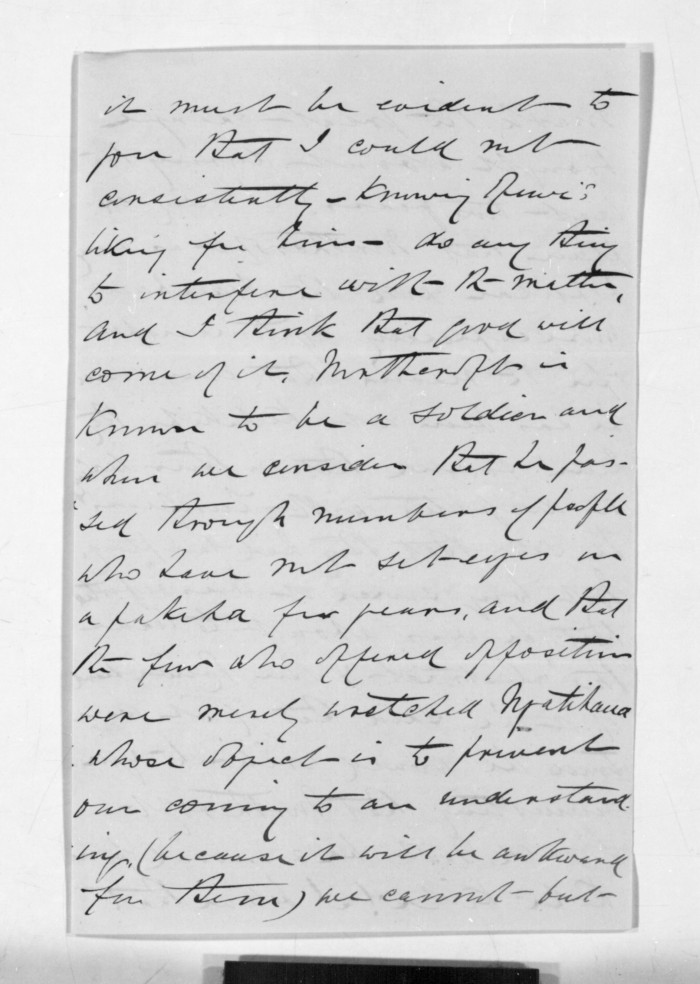 it must be evident to
you that I could not
consistently – knowing Rewi's
liking for him – do any thing
to interfere with the matter,
and I think that good will
come of it. is
known to be a soldier and
when we consider that he pas-
sed through numbers of people
who have not set eyes on
a pakeha for years, and that
the few who offered opposition
were merely wretched Ngatihaua
whose object is to prevent
our coming to an understand-
ing, (because it will be awkward
for them) we cannot but